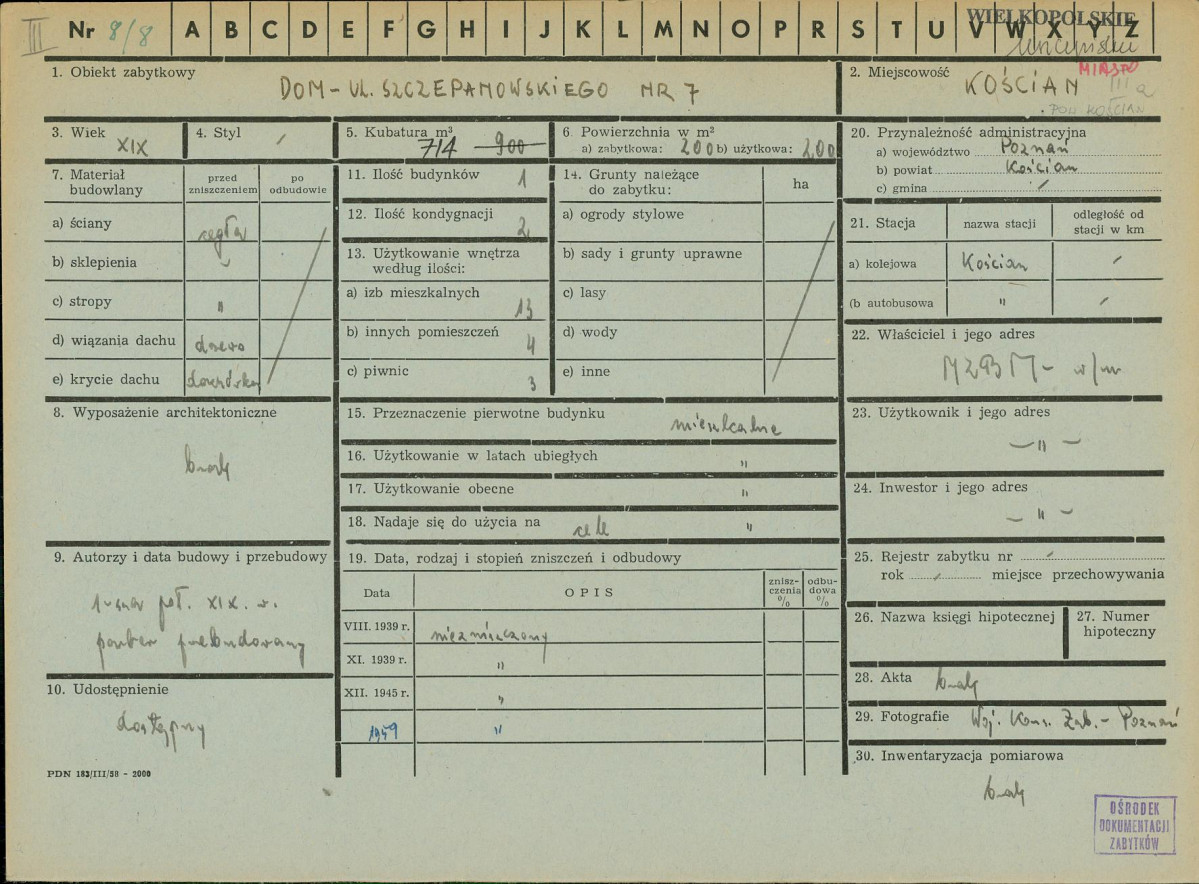 III Nr 8/8 A B C D E F G H I J K L M N O P R S T U V W X Y Z
WIELKOPOLSKIE
MIASTO
1. Obiekt zabytkowy
DOM - UL. SZCZEPANOWSKIEGO NR 7
2. Miejscowość
KOŚCIAN III a
POW KOŚCIAN
3. Wiek
XIX
4. Styl
/
5. Kubatura m³
714 900
6 Powierzchnia w m²
a) zabytkowa: 200 b) użytkowa: 200
20. Przynależność administracyjna
a) województwo Poznań
b) powiat Kościan
c) gmina /
7. Materiał budowlany
przed zniszczeniem
po odbudowie
a) ściany cegła
b) sklepienia
c) stropy "
d) wiązania dachu drewno
e) krycie dachu dachówka
11. Ilość budynków 1
12. Ilość kondygnacji 2
13. Użytkowanie wnętrza
według ilości:
a) izb mieszkalnych 13
b) innych pomieszczeń 4
c) piwnic 3
14. Grunty należące
do zabytku:
ha
a) ogrody stylowe
b) sady i grunty uprawne
c) lasy
d) wody
e) inne
21. Stacja
nazwa stacji
odległość od
stacji w km
a) kolejowa Kościan /
(b autobusowa " /
22. Właściciel i jego adres
MZBM - w/m
23. Użytkownik i jego adres
— " —
24. Inwestor i jego adres
— " —
8. Wyposażenie architektoniczne
brak
15. Przeznaczenie pierwotne budynku mieszkalne
16. Użytkowanie w latach ubiegłych "
17. Użytkowanie obecne "
18. Nadaje się do użycia na cele "
9. Autorzy i data budowy i przebudowy
1-sza poł. XIX. w.
przebudowany
10. Udostępnienie
dostępny
19. Data, rodzaj i stopień zniszczeń i odbudowy
Data
OPIS
znisz-
czenia
%
odbu-
dowa
%
VIII. 1939 r. niezniszczony
XI. 1939 r. "
XII. 1945 r. "
1959 "
25. Rejestr zabytku nr /
rok / miejsce przechowywania
26. Nazwa księgi hipotecznej
27. Numer
hipoteczny
28. Akta brak
29. Fotografie Woj. Kons. Zab. - Poznań
30. Inwentaryzacja pomiarowa
brak
PDN 183/III/58 - 2000
OŚRODEK
DOKUMENTACJI
ZABYTKÓW